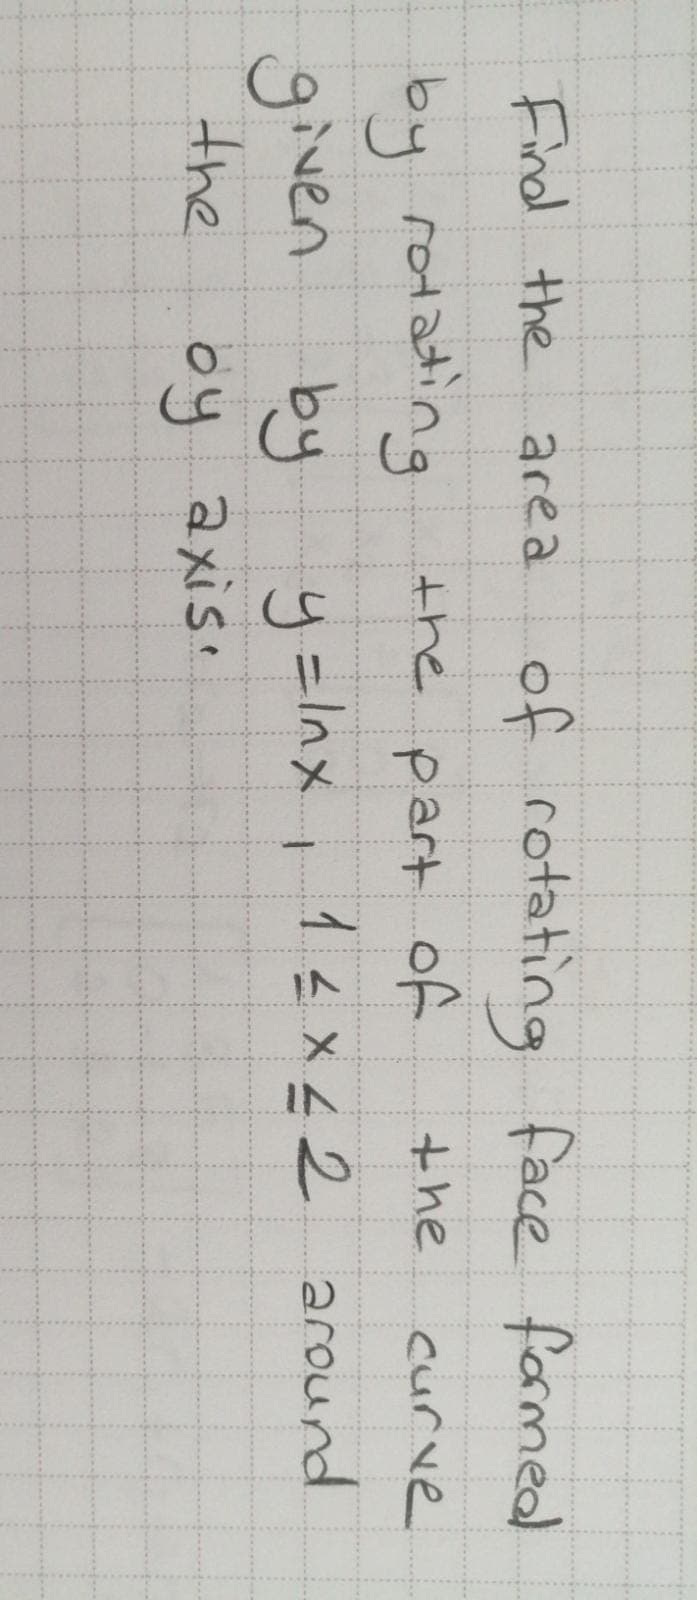 Find the area of rotating face formed
by rotating the part of the curve
given by y=lnx, 1≤x≤2 around
the oy axis.